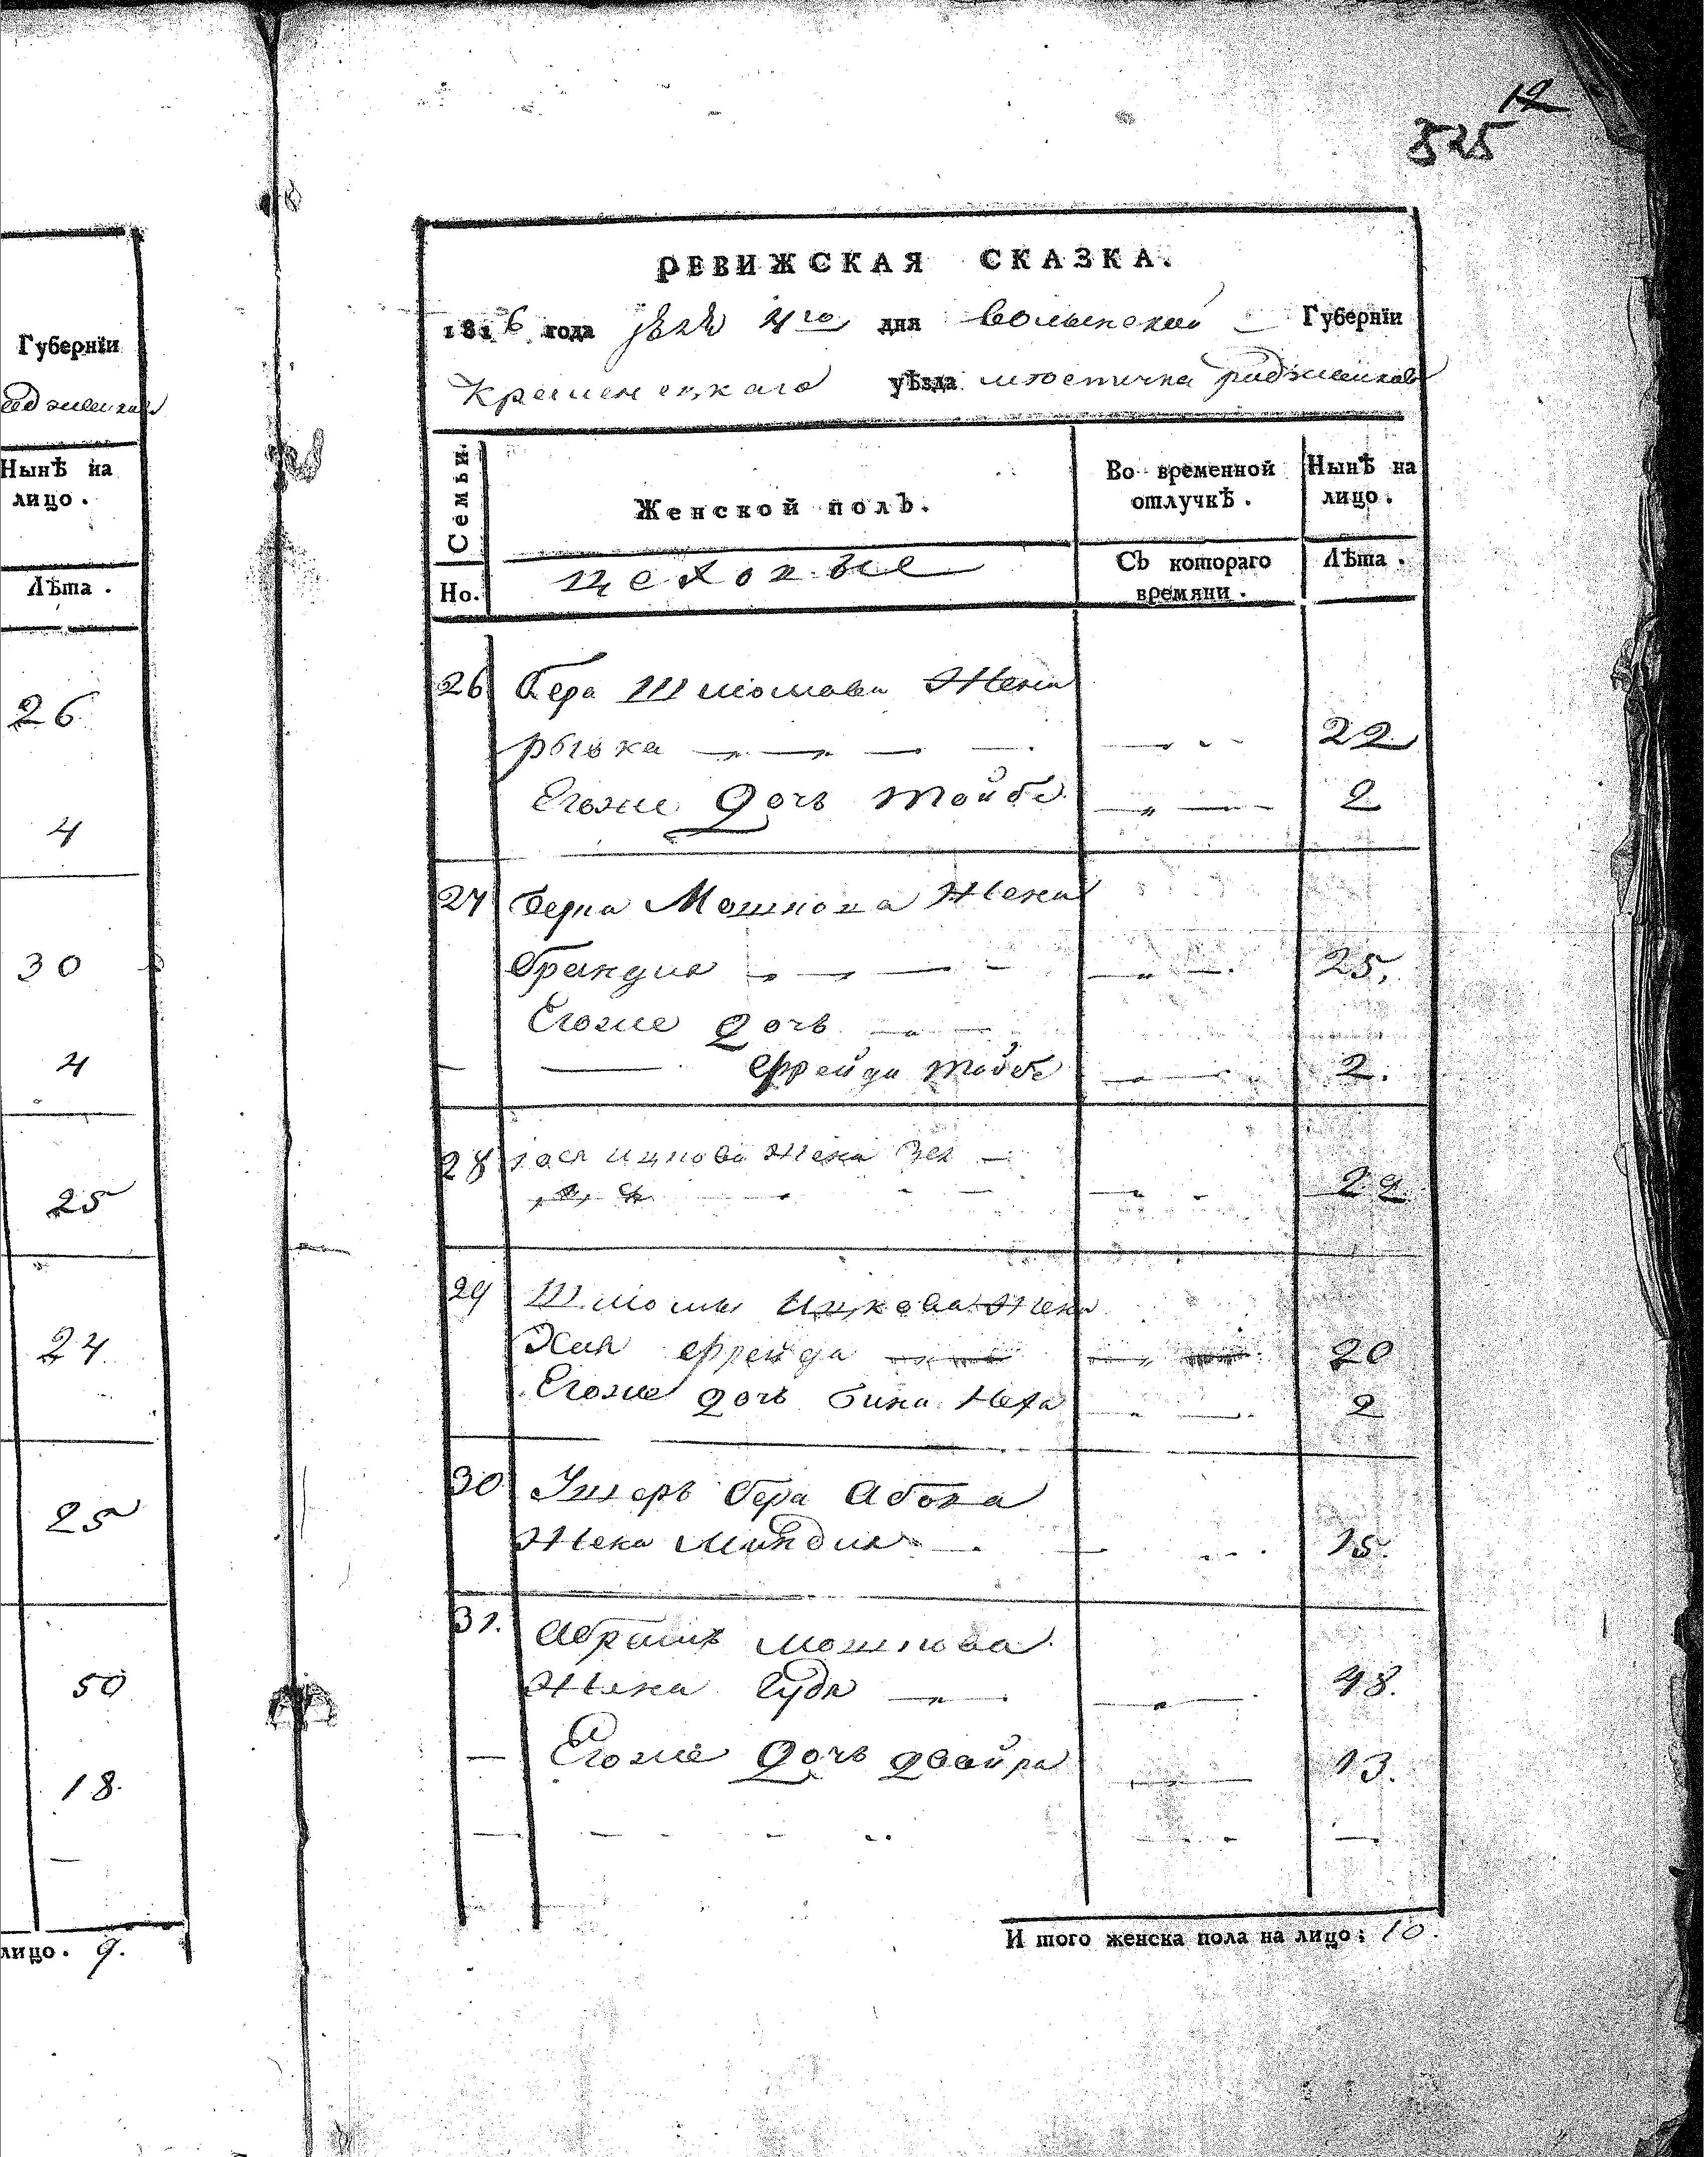 12
525
Губернїи
Нынѣ на
лицо.
Лѣта.
26
4
30
4
25
24
25
50
18.
лицо. 9.
РЕВИЖСКАЯ СКАЗКА.
1816 года 4го дня Волынской Губернїи
Кременецкаго уѣзда местичка
Семьи.
Женской полъ.
Во временной
отлучкѣ.
Нынѣ на
лицо.
Но.
цеховые
Съ котораго
времяни.
Лѣта.
26 Бера Шлиомова Жена
рывка 22
Егоже дочь тойбе 2
27 Берка Мошкова Жена
Брандля 25.
Егоже дочь
Фрейда тойбе 2.
28 Ицкова Жена 22
29 Шлиомы Ицкова Жена
Хая Фрейда 20
Егоже дочь бина Неха 2
30 Ушеръ бера Абова
Жена Миндля 15.
31. Абрамъ мошкова
Жена Гудя 48.
Егоже дочь двойра 13.
И того женска пола на лицо: 10.